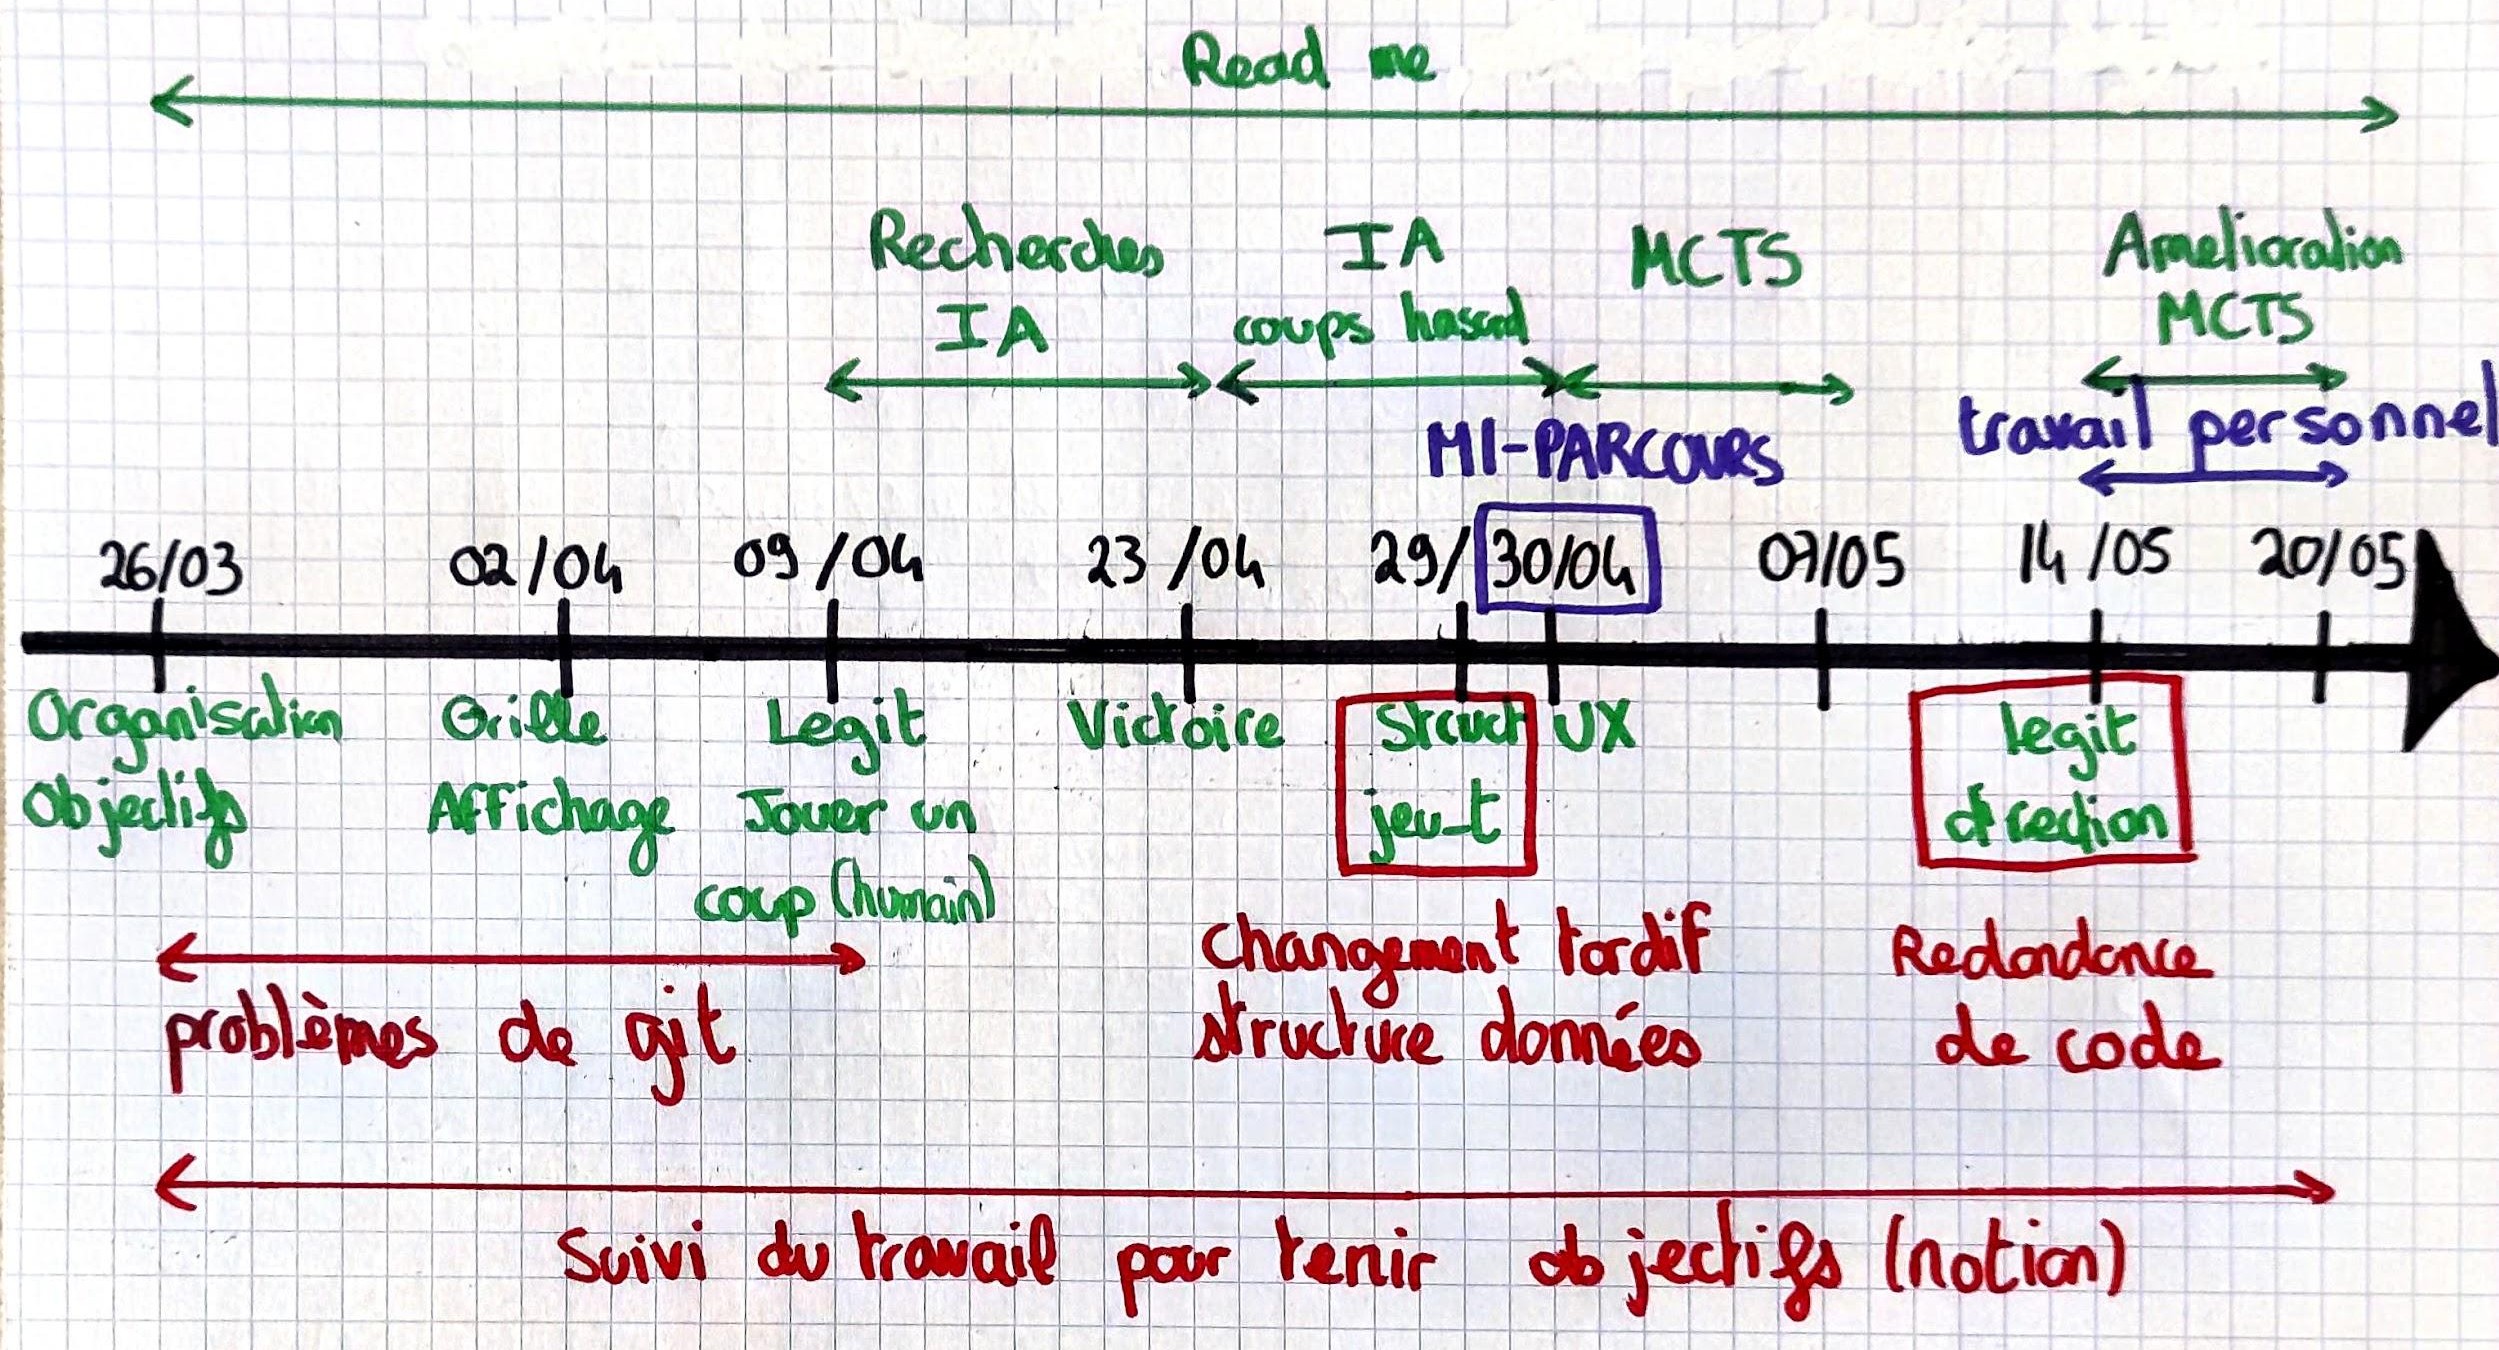 Read me
Recherches
IA
IA
coups hasard
MCTS
Amelioration
MCTS
travail personnel
MI-PARCOURS
26/03
02/04
09/04
23/04
29/30/04
07/05
14/05
20/05
Organisation
Objectifs
Grille
Affichage
Legit
Jouer un
coup (humain)
Victoire
Struct
jeu_t
UX
legit
direction
problèmes de git
Changement tardif
structure données
Redondance
de code
Suivi du travail pour tenir objectifs (notion)